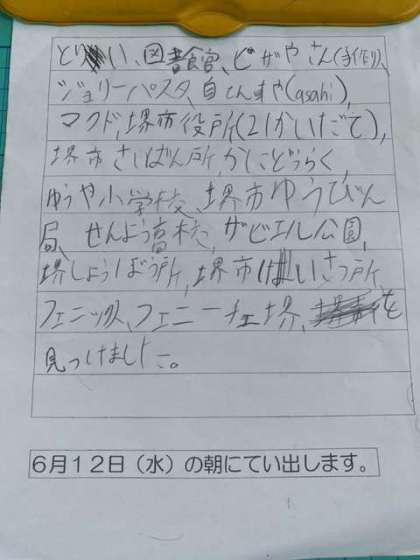 とりい、図書館、ピザやさん(手作り)、
ジョリーパスタ、自てんすや(asahi)、
マクド、堺市役所(21かいだて)、
堺市さいばん所、かにどうらく、
ゆうや小学校、堺市ゆうびん
局、せんよう高校、ザビエル公園、
堺しょうぼう所、堺市けいさつ所、
フェニックス、フェニーチェ堺、を
見つけました。
6月12日(水)の朝にてい出します。